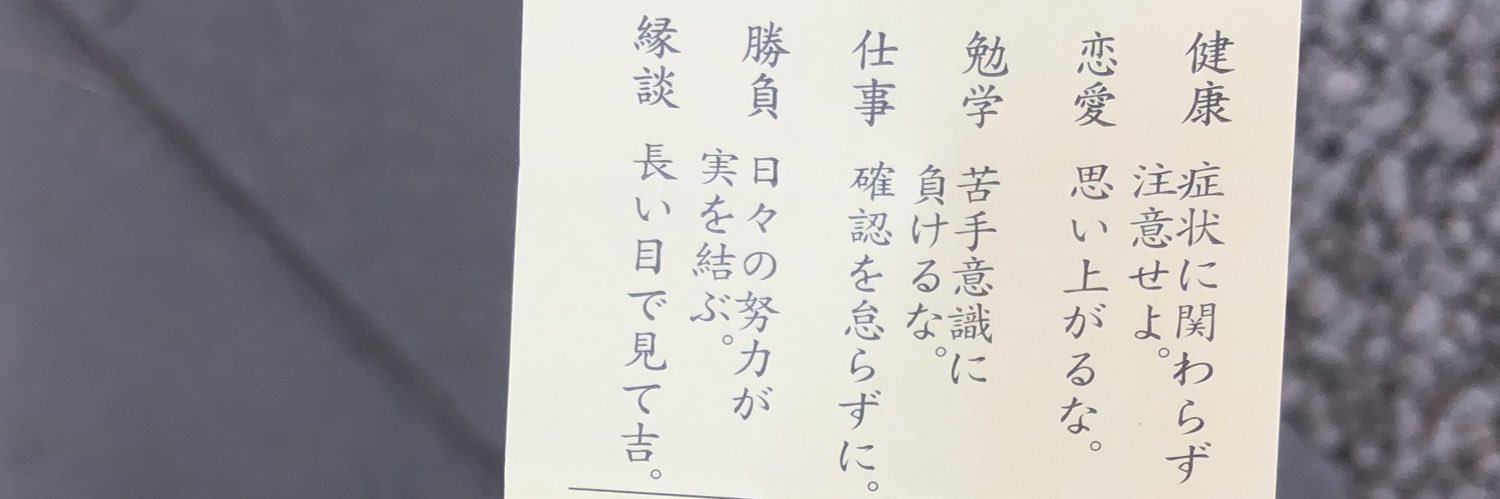 健康 症状に関わらず
注意せよ。
恋愛 思い上がるな。
勉学 苦手意識に
負けるな。
仕事 確認を怠らずに。
勝負 日々の努力が
実を結ぶ。
縁談 長い目で見て吉。